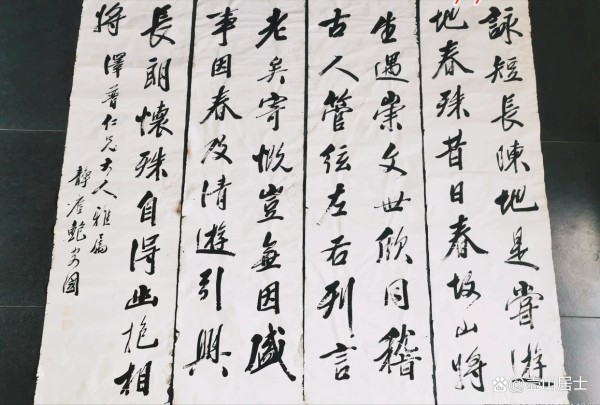 詠短長陳地是嘗遊
地春殊昔日春故山將
生遇崇文世欣同稽
古人管弦左右列言
老矣寄慨豈無因感
事因春及清遊引興
長朗懷殊自得幽抱相
將
澤普仁兄大人雅屬
靜崖鮑 國
山居士